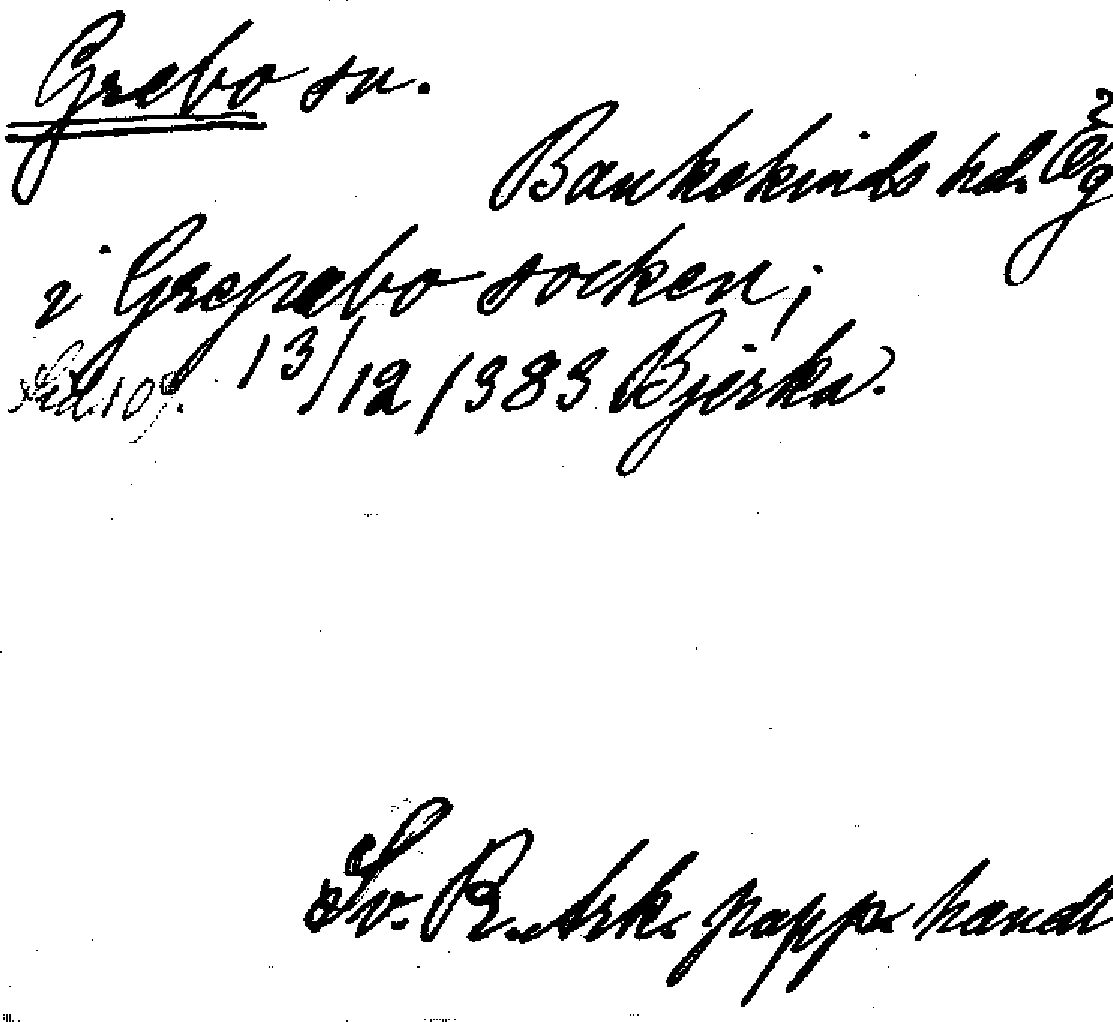 Grebo sn.
Bankekinds hd. Ög
i Grepabo socken;
Sid. 109. 13/12 1383 Bjerka.
Sv. R. Ark. papp. handl